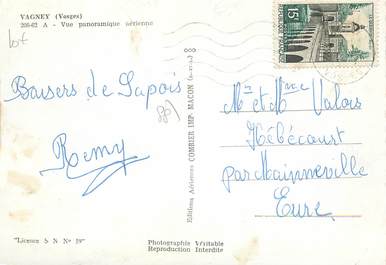 VAGNEY (Vosges)
206-62 A - Vue panoramique aérienne
lot
Baisers de Sapois
Remy
88)
"Licence S N Nº 59"
Editions Aériennes COMBIER IMP. MACON
Photographie Véritable
Reproduction Interdite
15F
Mr et Mme Valois
Hébécourt
par Mainneville
Eure.